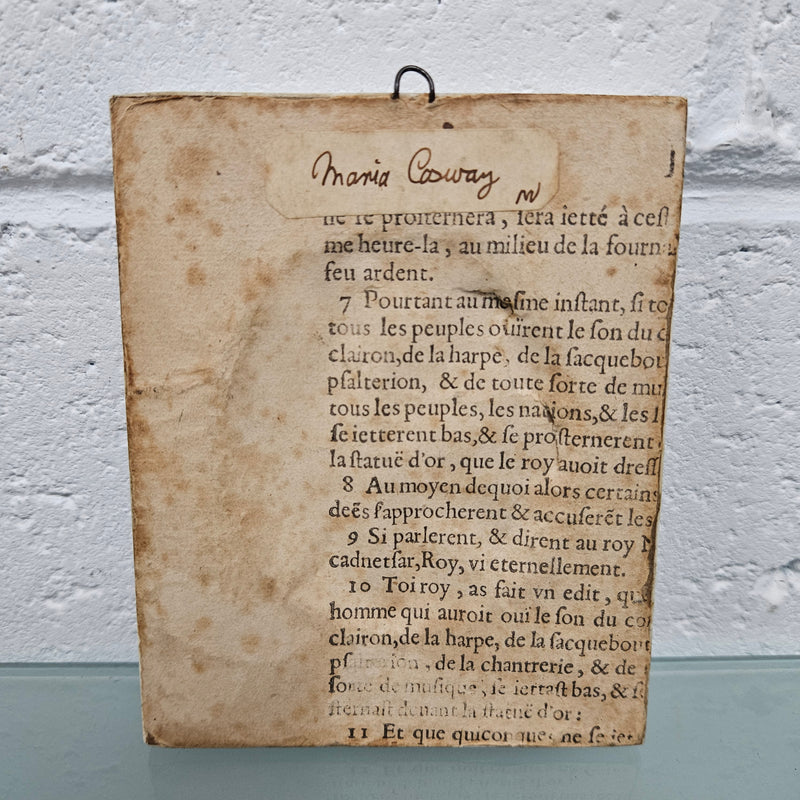 Maria Cosway
ne se prosternera, sera ietté à ceſt
me heure-la, au milieu de la fourn
feu ardent.
7 Pourtant au meſme inſtant, ſi to
tous les peuples ouïrent le ſon du c
clairon, de la harpe, de la ſacquebou
pſalterion, & de toute ſorte de mu
tous les peuples, les nations, & les l
ſe ietterent bas, & ſe proſternerent
la ſtatuë d'or, que le roy auoit dreſſ
8 Au moyen dequoi alors certains
deẽs ſ'approcherent & accuſerẽt les
9 Si parlerent, & dirent au roy N
cadnetſar, Roy, vi eternellement.
10 Toi roy, as fait vn edit, que
homme qui auroit ouï le ſon du cor
clairon, de la harpe, de la ſacquebout
pſalterion, de la chantrerie, & de
ſorte de muſique, ſe iettaſt bas, & ſe
ſternaſt deuant la ſtatuë d'or:
11 Et que quiconque ne ſe iet